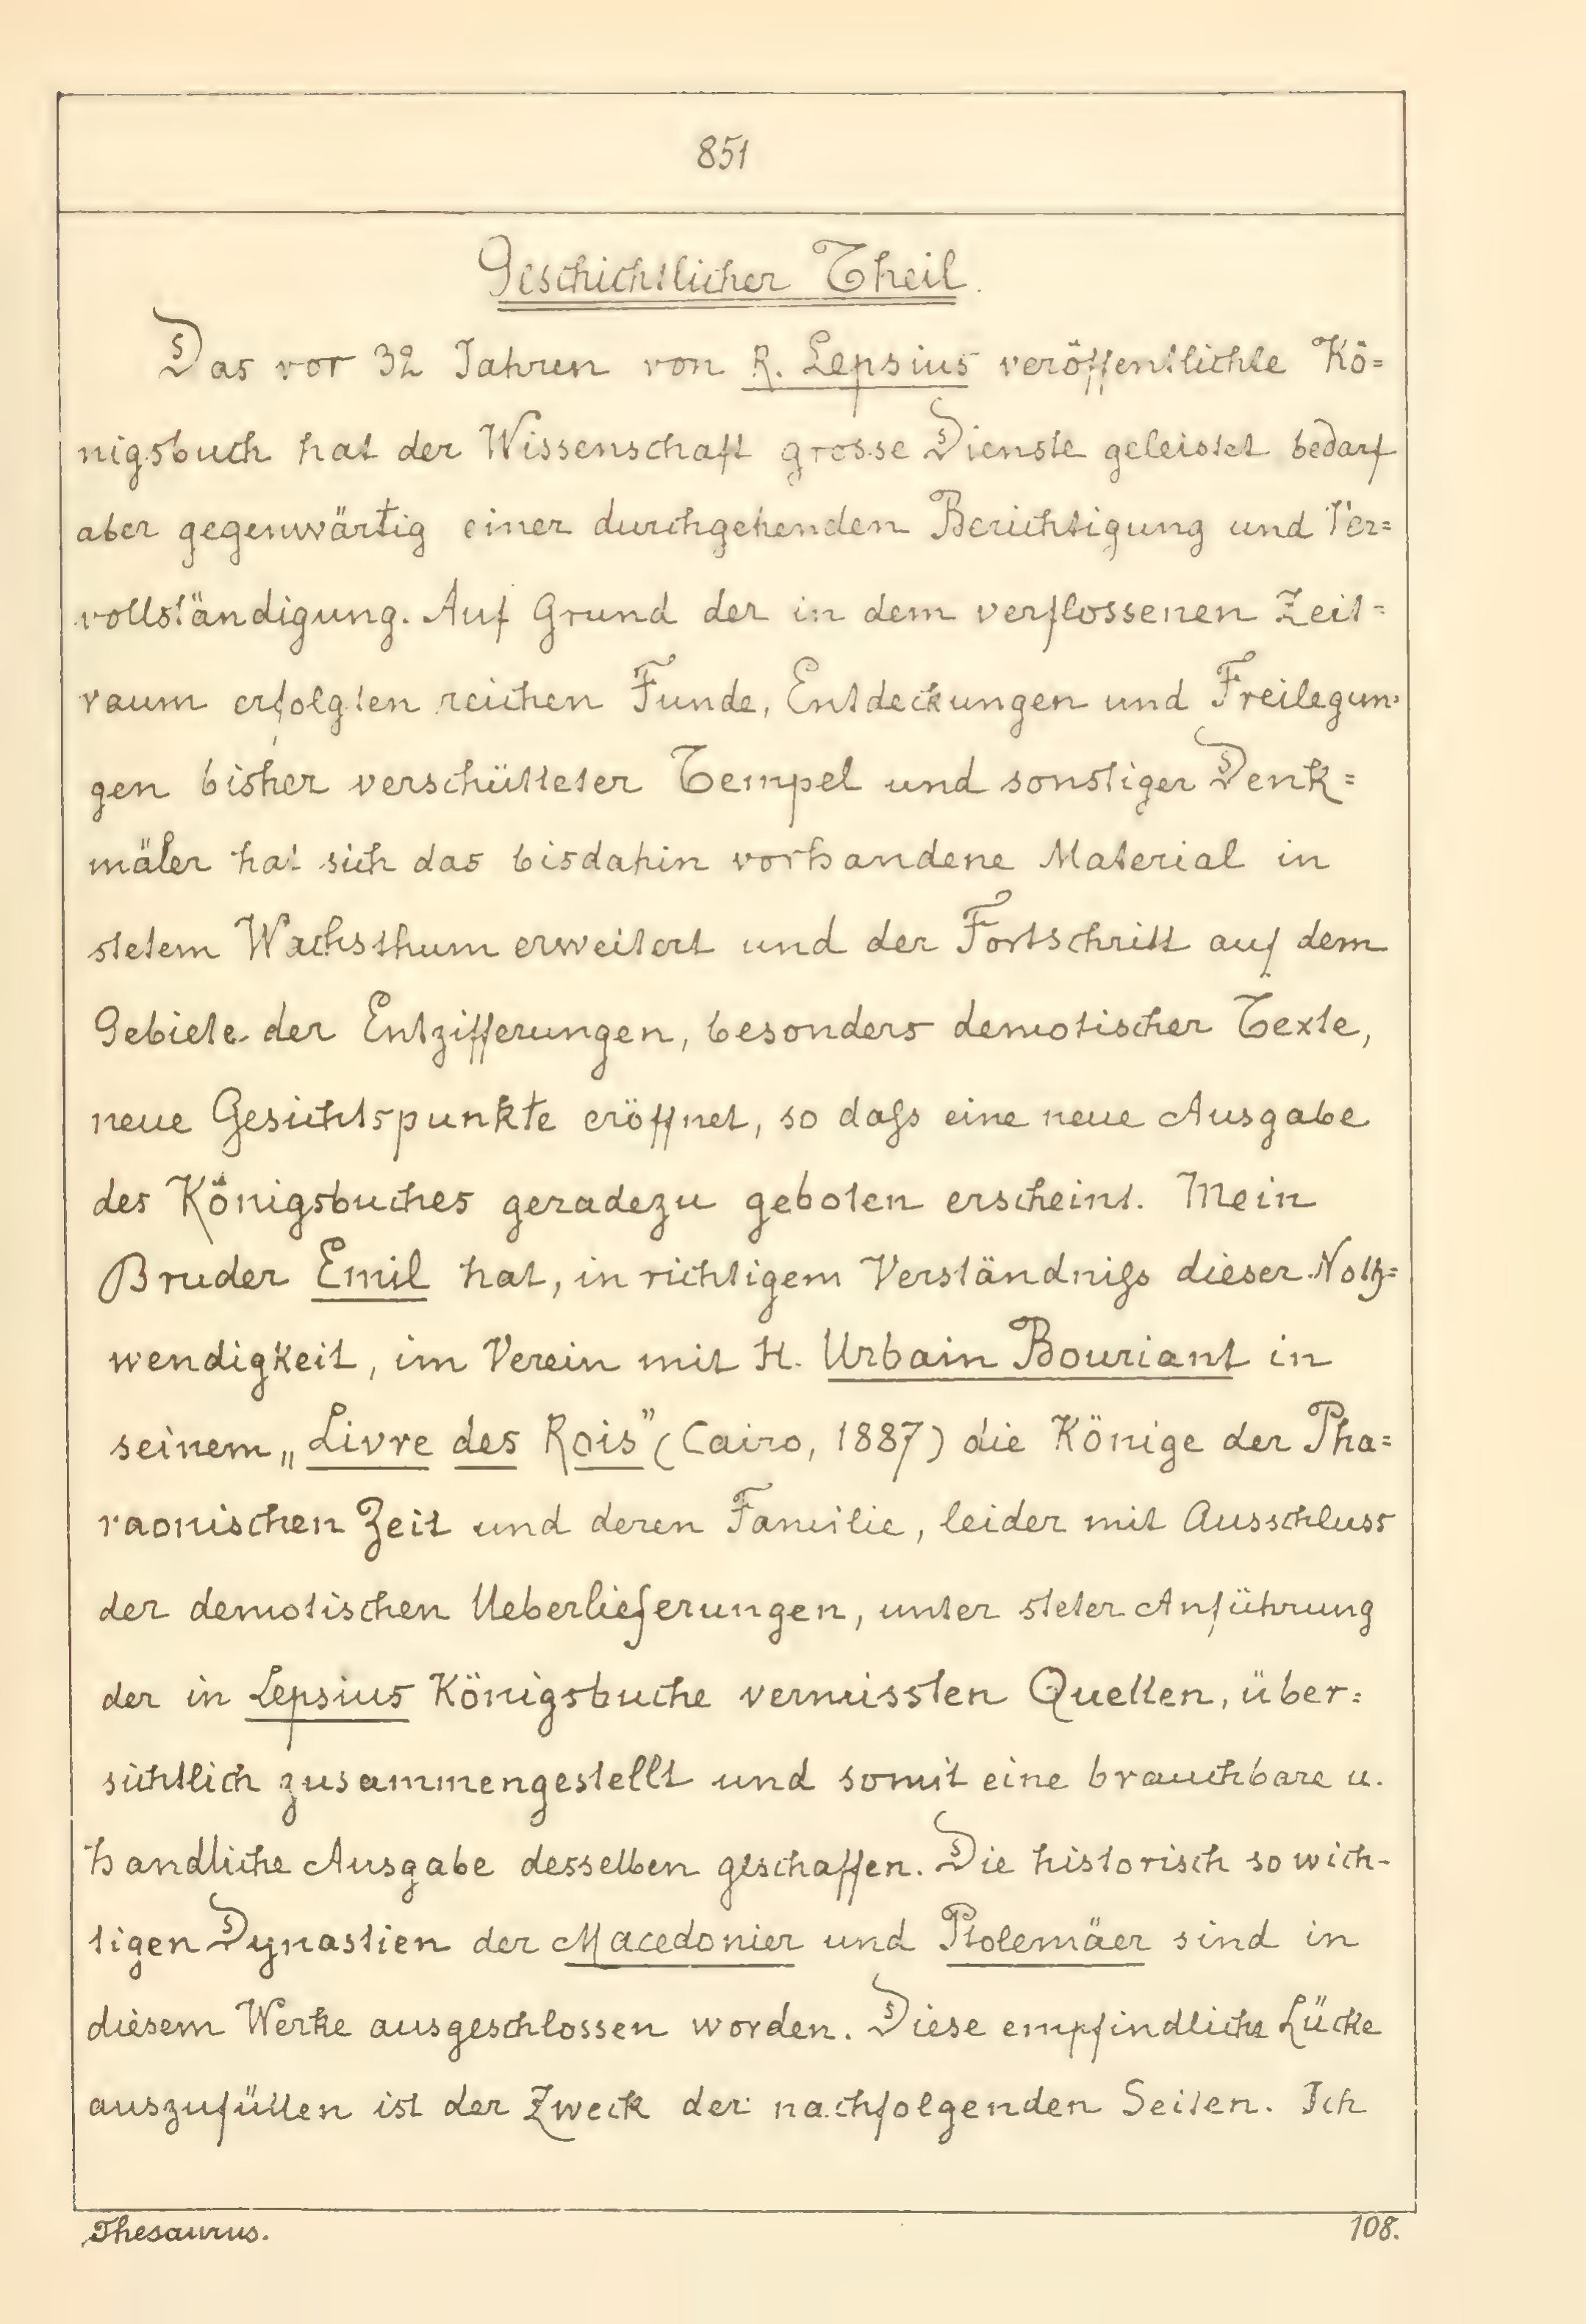 851
Geschichtlicher Theil.
Das vor 32 Jahren von R. Lepsius veröffentlichte Kö=
nigsbuch hat der Wissenschaft grosse Dienste geleistet bedarf
aber gegenwärtig einer durchgehenden Berichtigung und Ver=
vollständigung. Auf Grund der in dem verflossenen Zeit=
raum erfolgten reichen Funde, Entdeckungen und Freilegun=
gen bisher verschütteter Tempel und sonstiger Denk=
mäler hat sich das bisdahin vorhandene Material in
stetem Wachsthum erweitert und der Fortschritt auf dem
Gebiete der Entzifferungen, besonders demotischer Texte,
neue Gesichtspunkte eröffnet, so daſs eine neue Ausgabe
des Königsbuches geradezu geboten erscheint. Mein
Bruder Emil hat, in richtigem Verständniſs dieser Noth=
wendigkeit, im Verein mit H. Urbain Bouriant in
seinem „Livre des Rois” (Cairo, 1887) die Könige der Pha=
raonischen Zeit und deren Familie, leider mit Ausschluss
der demotischen Ueberlieferungen, unter steter Anführung
der in Lepsius Königsbuche vermissten Quellen, über=
sichtlich zusammengestellt und somit eine brauchbare u.
handliche Ausgabe desselben geschaffen. Die historisch so wich-
tigen Dynastien der Macedonier und Ptolemäer sind in
diesem Werke ausgeschlossen worden. Diese empfindliche Lücke
auszufüllen ist der Zweck der nachfolgenden Seiten. Ich
Thesaurus.
108.